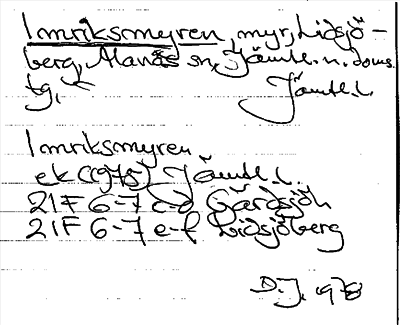 Imriksmyren, myr, Lidsjö-
berg, Alanäs sn, Jämtl. n. doms.
tg,
Jämtl. l.
Imriksmyren
ek (1975) Jämtl. l.
21F 6-7 c-d Gärdsjön
21F 6-7 e-f Lidsjöberg
D.J. 1978